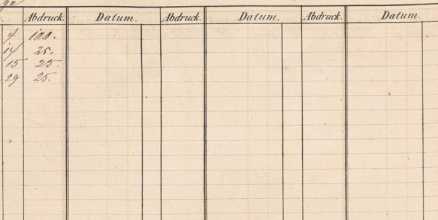 Abdruck. Datum. Abdruck. Datum. Abdruck. Datum.
9 100.
14 25.
15 25.
29 25.